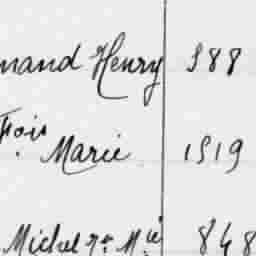 mand Henry 988
Fois Marie 1919
Michel Ne Mie 848